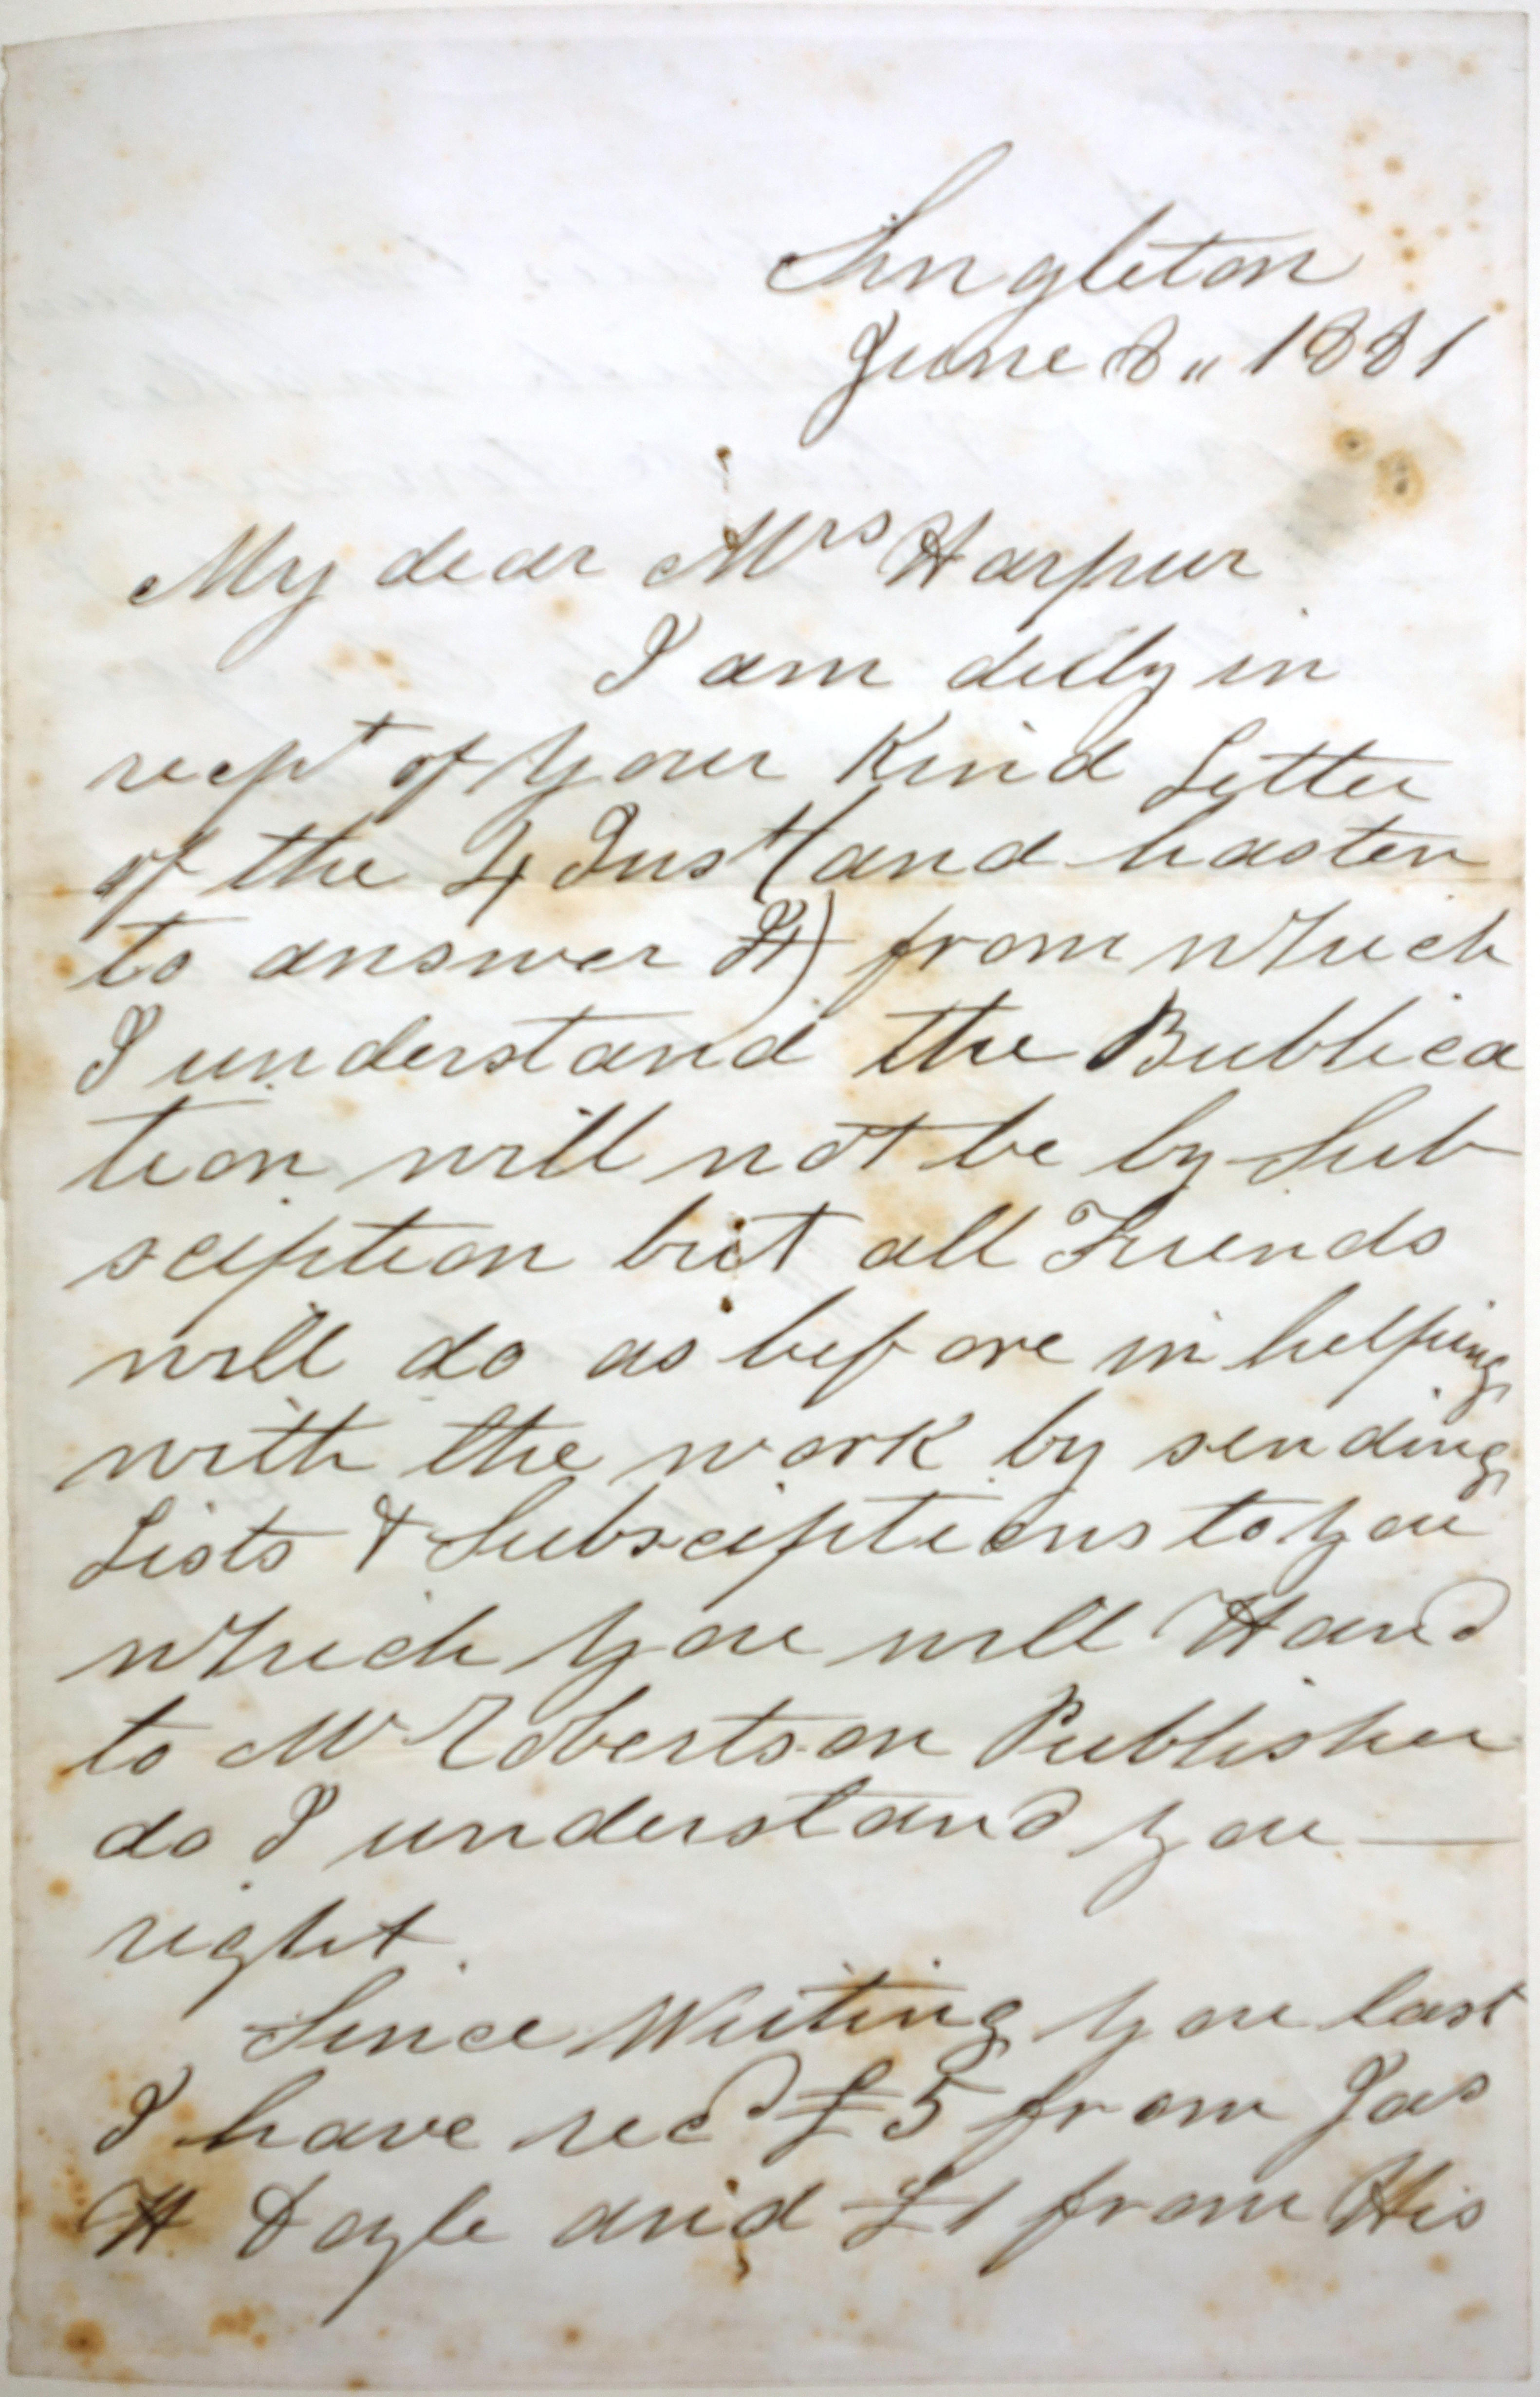 Singleton
June 8 " 1881
My dear Mrs Harpur
I am duly in
recpt of your Kind Letter
of the 4 Inst (and hasten
to answer It) from which
I understand the Publica
tion will not be by Sub
sciption but all Friends
will do as before in helping
with the work by sending
Lists & Subsciptions to you
which you will Hand
to Mr Robertson Publisher
do I understand you —
right.
Since Writing you last
I have recd £5 from Jas
H. Doyle and £1 from His